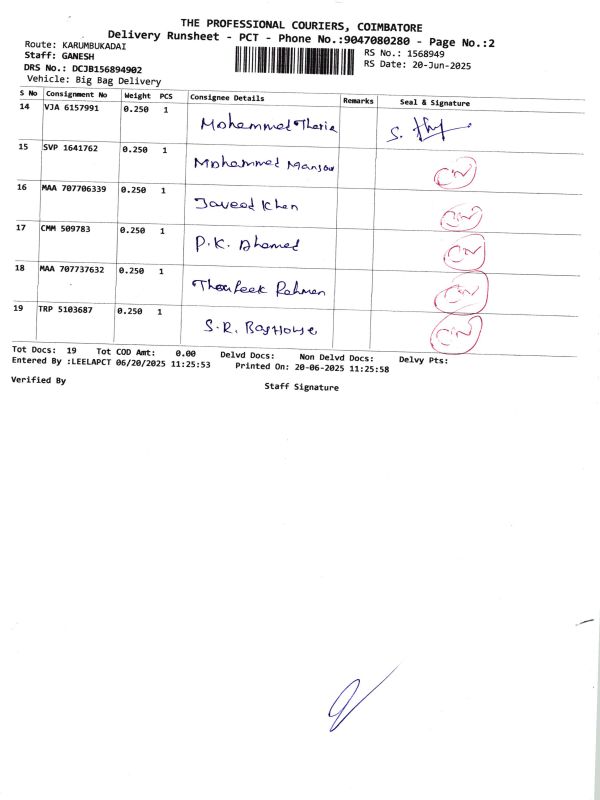 THE PROFESSIONAL COURIERS, COIMBATORE
Delivery Runsheet - PCT - Phone No.:9047080280 - Page No.:2
Route: KARUMBUKADAI
RS No.: 1568949
Staff: GANESH
RS Date: 20-Jun-2025
DRS No.: DCJB156894902
Vehicle: Big Bag Delivery
S No Consignment No Weight PCS Consignee Details Remarks Seal & Signature
14 VJA 6157991 0.250 1 Mohammed Tharia
15 SVP 1641762 0.250 1 Mohammed Mansoor
16 MAA 707706339 0.250 1 Javeed Khan
17 CMM 509783 0.250 1 P.K. Ahamed
18 MAA 707737632 0.250 1 Thoufeek Rahman
19 TRP 5103687 0.250 1 S.R.
Tot Docs: 19 Tot COD Amt: 0.00 Delvd Docs: Non Delvd Docs: Delvy Pts:
Entered By :LEELAPCT 06/20/2025 11:25:53 Printed On: 20-06-2025 11:25:58
Verified By
Staff Signature